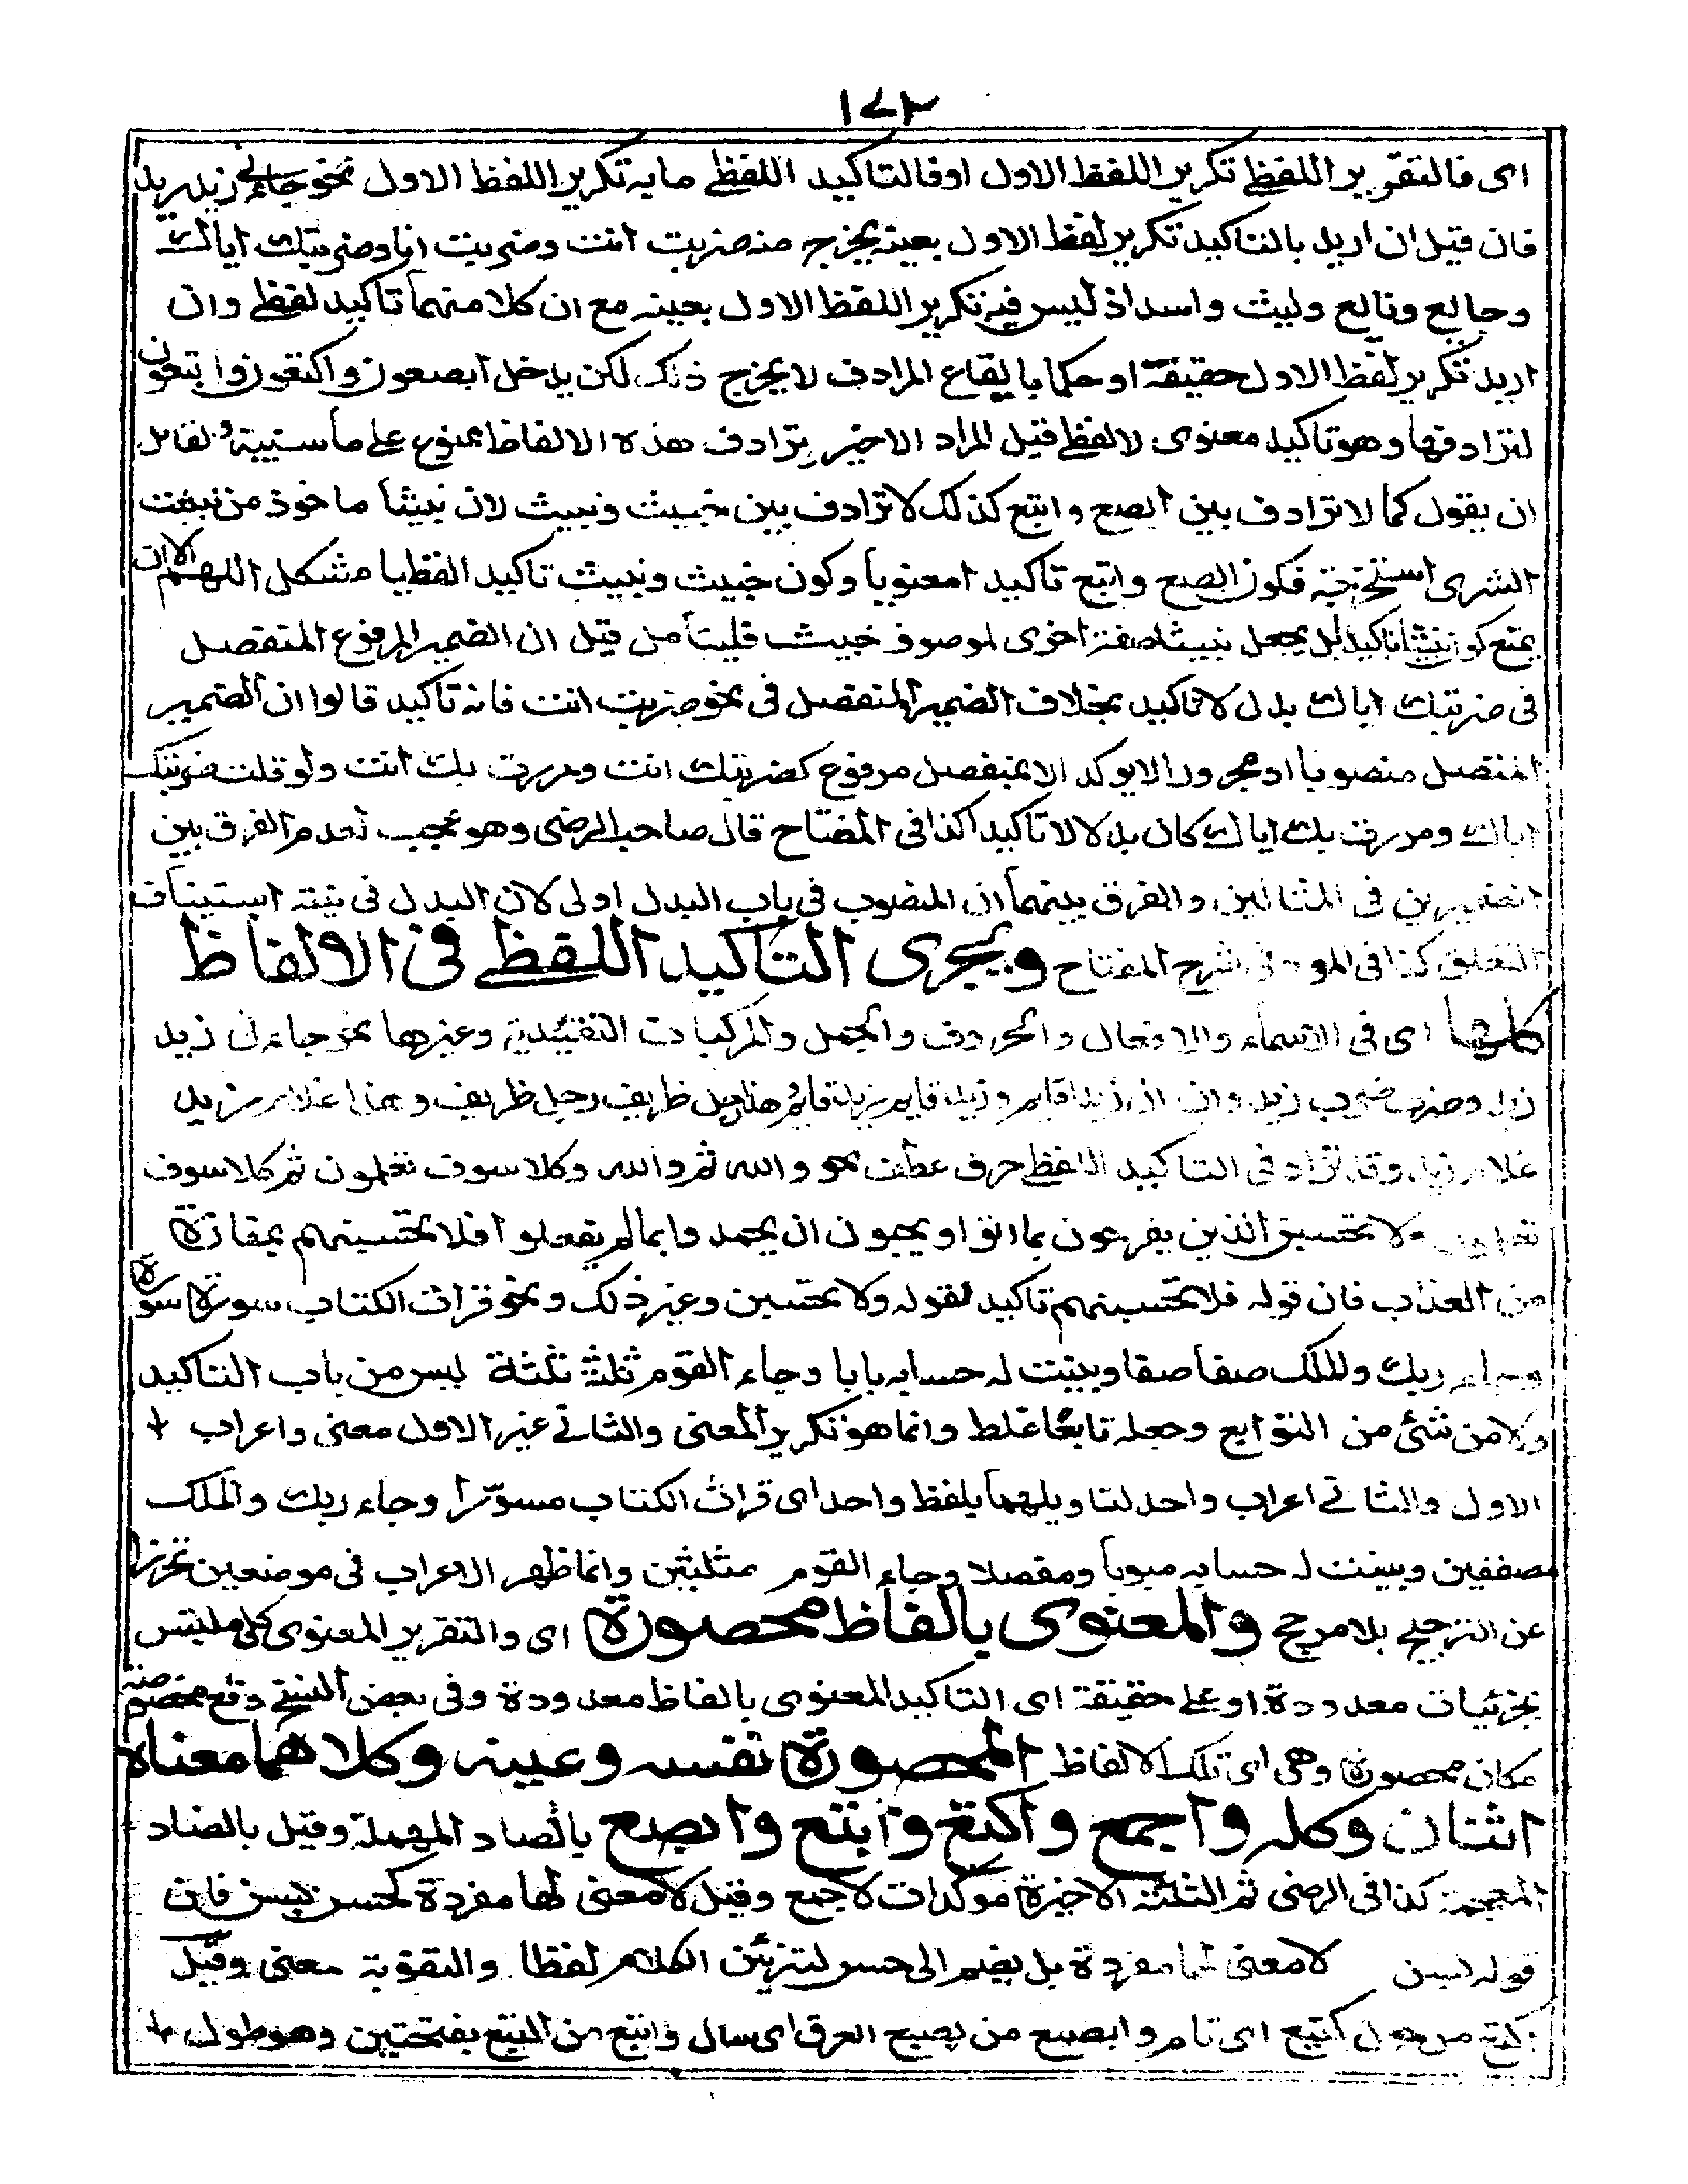 ١٧٢
اى فالتقرير اللفظے تكرير اللفظ الاول اوفالتاكيد اللفظے مابه تكرير اللفظ الاول نحو جاءنے زيد زيد
فان قيل ان اريد بالتاكيد تكرير لفظ الاول بعينه يخرج منه ضربت انت وضربت انا وضربتك اياك
وجايع ونايع وليث واسد اذ ليس فيه تكرير اللفظ الاول بعينه مع ان كلا منهما تاكيد لفظے وان
اريد تكرير لفظ الاول حقيقة او حكما بايقاع المرادف لا يخرج ذلك لكن يدخل ابصعون واكتعون وابتعون
لترادفها وهو تاكيد معنوى لا لفظے قيل المراد الاخير وترادف هذه الالفاظ ممنوع على ما ستبينه ولقايل
ان يقول كما لا ترادف بين ابصع وابتع كذلك لا ترادف بين خبيث ونبيث لان نبيثا ماخوذ من نبثت
الشرى استخرجته فكون ابصع وابتع تاكيدا معنويا وكون خبيث ونبيث تاكيد الفظيا مشكل اللهم الا ان
يمنع كون نبيثا تاكيدا بل يجعل نبيثا صفة اخرى لموصوف خبيث قلنا من قبل ان الضمير المرفوع المنفصل
فى ضربتك اياك بدل لا تاكيد بخلاف الضمير المنفصل فى نحو ضربت انت فانه تاكيد قالوا ان الضمير
المتصل منصوبا او مجرورا لا يوكد الا بمنفصل مرفوع كضربتك انت ومررت بك انت ولو قلت ضربتك
اياك ومررت بك اياك كان بدلا لا تاكيدا كذا فى المفتاح قال صاحب الرضى وهو عجيب لعدم الفرق بين
الضميرين فى المثالين والفرق بينهما ان المنصوب فى باب البدل اولى لان البدل فى نيته استيناف
التعلق كذا فى شرح المفتاح ويجرى التاكيد اللفظے فى الالفاظ
كلها اى فى الاسماء والافعال والحروف والجمل والمركبات التقييدية وغيرها نحو جاءنى زيد
زيد وضرب ضرب زيد وان ان زيدا قايم وزيد قايم زيد قايم وهذا رجل ظريف رجل ظريف وهذا غلام زيد
غلام زيد وقد تزاد فى التاكيد اللفظے حرف عطف نحو والله ثم والله وكلا سوف تعلمون ثم كلا سوف
تعلمون ولا تحسبن الذين يفرحون بما اتوا ويحبون ان يحمدوا بمالم يفعلوا فلا تحسبنهم بمفازة
من العذاب فان قوله فلا تحسبنهم تاكيد لقوله ولا تحسبن وغير ذلك ونحو قرات الكتاب سورة سورة
وجاء ربك والملك صفا صفا وبينت له حسابه بابا وجاء القوم ثلثة ثلثة ليس من باب التاكيد
ولا من شئ من التوابع وجعله تابعا غلط وانما هو تكرير المعنى والثانے غير الاول معنى واعراب
الاول والثانے اعراب واحد لتاويلهما بلفظ واحد اى قرات الكتاب مسوّرا وجاء ربك والملك
مصففين وبينت له حسابه مبوبا ومفصلا وجاء القوم مثلثين وانما ظهر الاعراب فى موضعين تحرزا
عن الترجيح بلا مرجح والمعنوى بالفاظ محصورة اى والتقرير المعنوى كلى ملتبس
بجزئيات معدودة او على حقيقة اى التاكيد المعنوى بالفاظ معدودة وفى بعض النسخ وقع مخصوصة
مكان محصورة وهى اى تلك الالفاظ المحصورة نفسه وعينه وكلاهما معناه
اثنان وكله واجمع واكتع وابتع وابصع بالصاد المهملة وقيل بالضاد
المعجمة كذا فى الرضى ثم الثلثة الاخيرة موكدات لاجمع وقيل لا معنى لها مفردة كحسن بسن فان
قوله بسن لا معنى لها مفردة بل يضم الى حسن لتزئين الكلام لفظا والتقوية معنى وقيل
اكتع من حول كتيع اى تام وابصع من بصيع العرق اى سال وابتع من البتع بفتحتين وهو طول